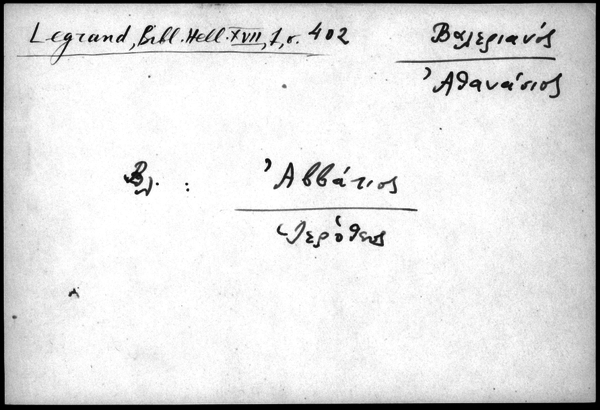 Legrand, Bibl. Hell. XVII, 1, σ. 402
Βαλεριανός
Ἀθανάσιος
Βλ. : Ἀββάτιος
Ἱερόθεος